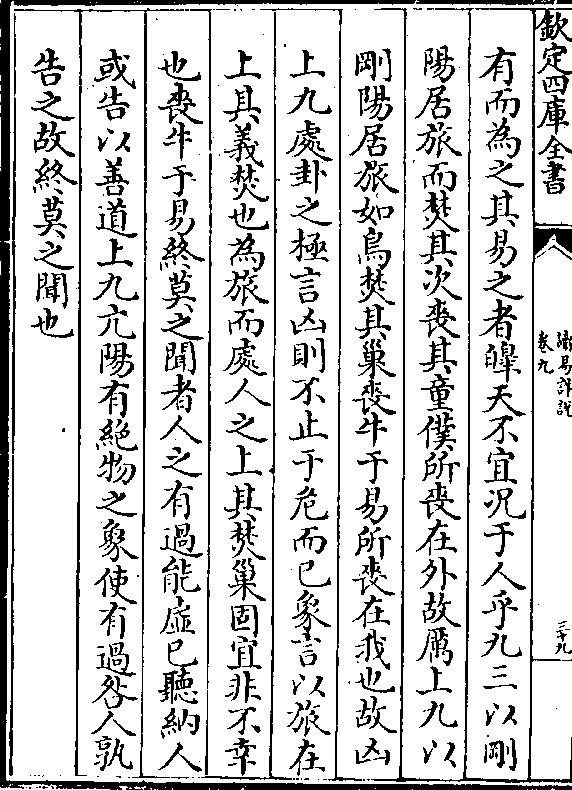 欽定四庫全書
讀易詳說
卷九
三十九
有而為之其易之者皞天不宜况于人乎九三以剛
陽居旅而焚其次喪其童僕所喪在外故厲上九以
剛陽居旅如鳥焚其巢喪牛于易所喪在我也故凶
上九處卦之極言凶則不止于危而已象言以旅在
上其義焚也為旅而處人之上其焚巢固宜非不幸
也喪牛于易終莫之聞者人之有過能虛已聽納人
或告以善道上九亢陽有絶物之象使有過咎人孰
告之故終莫之聞也